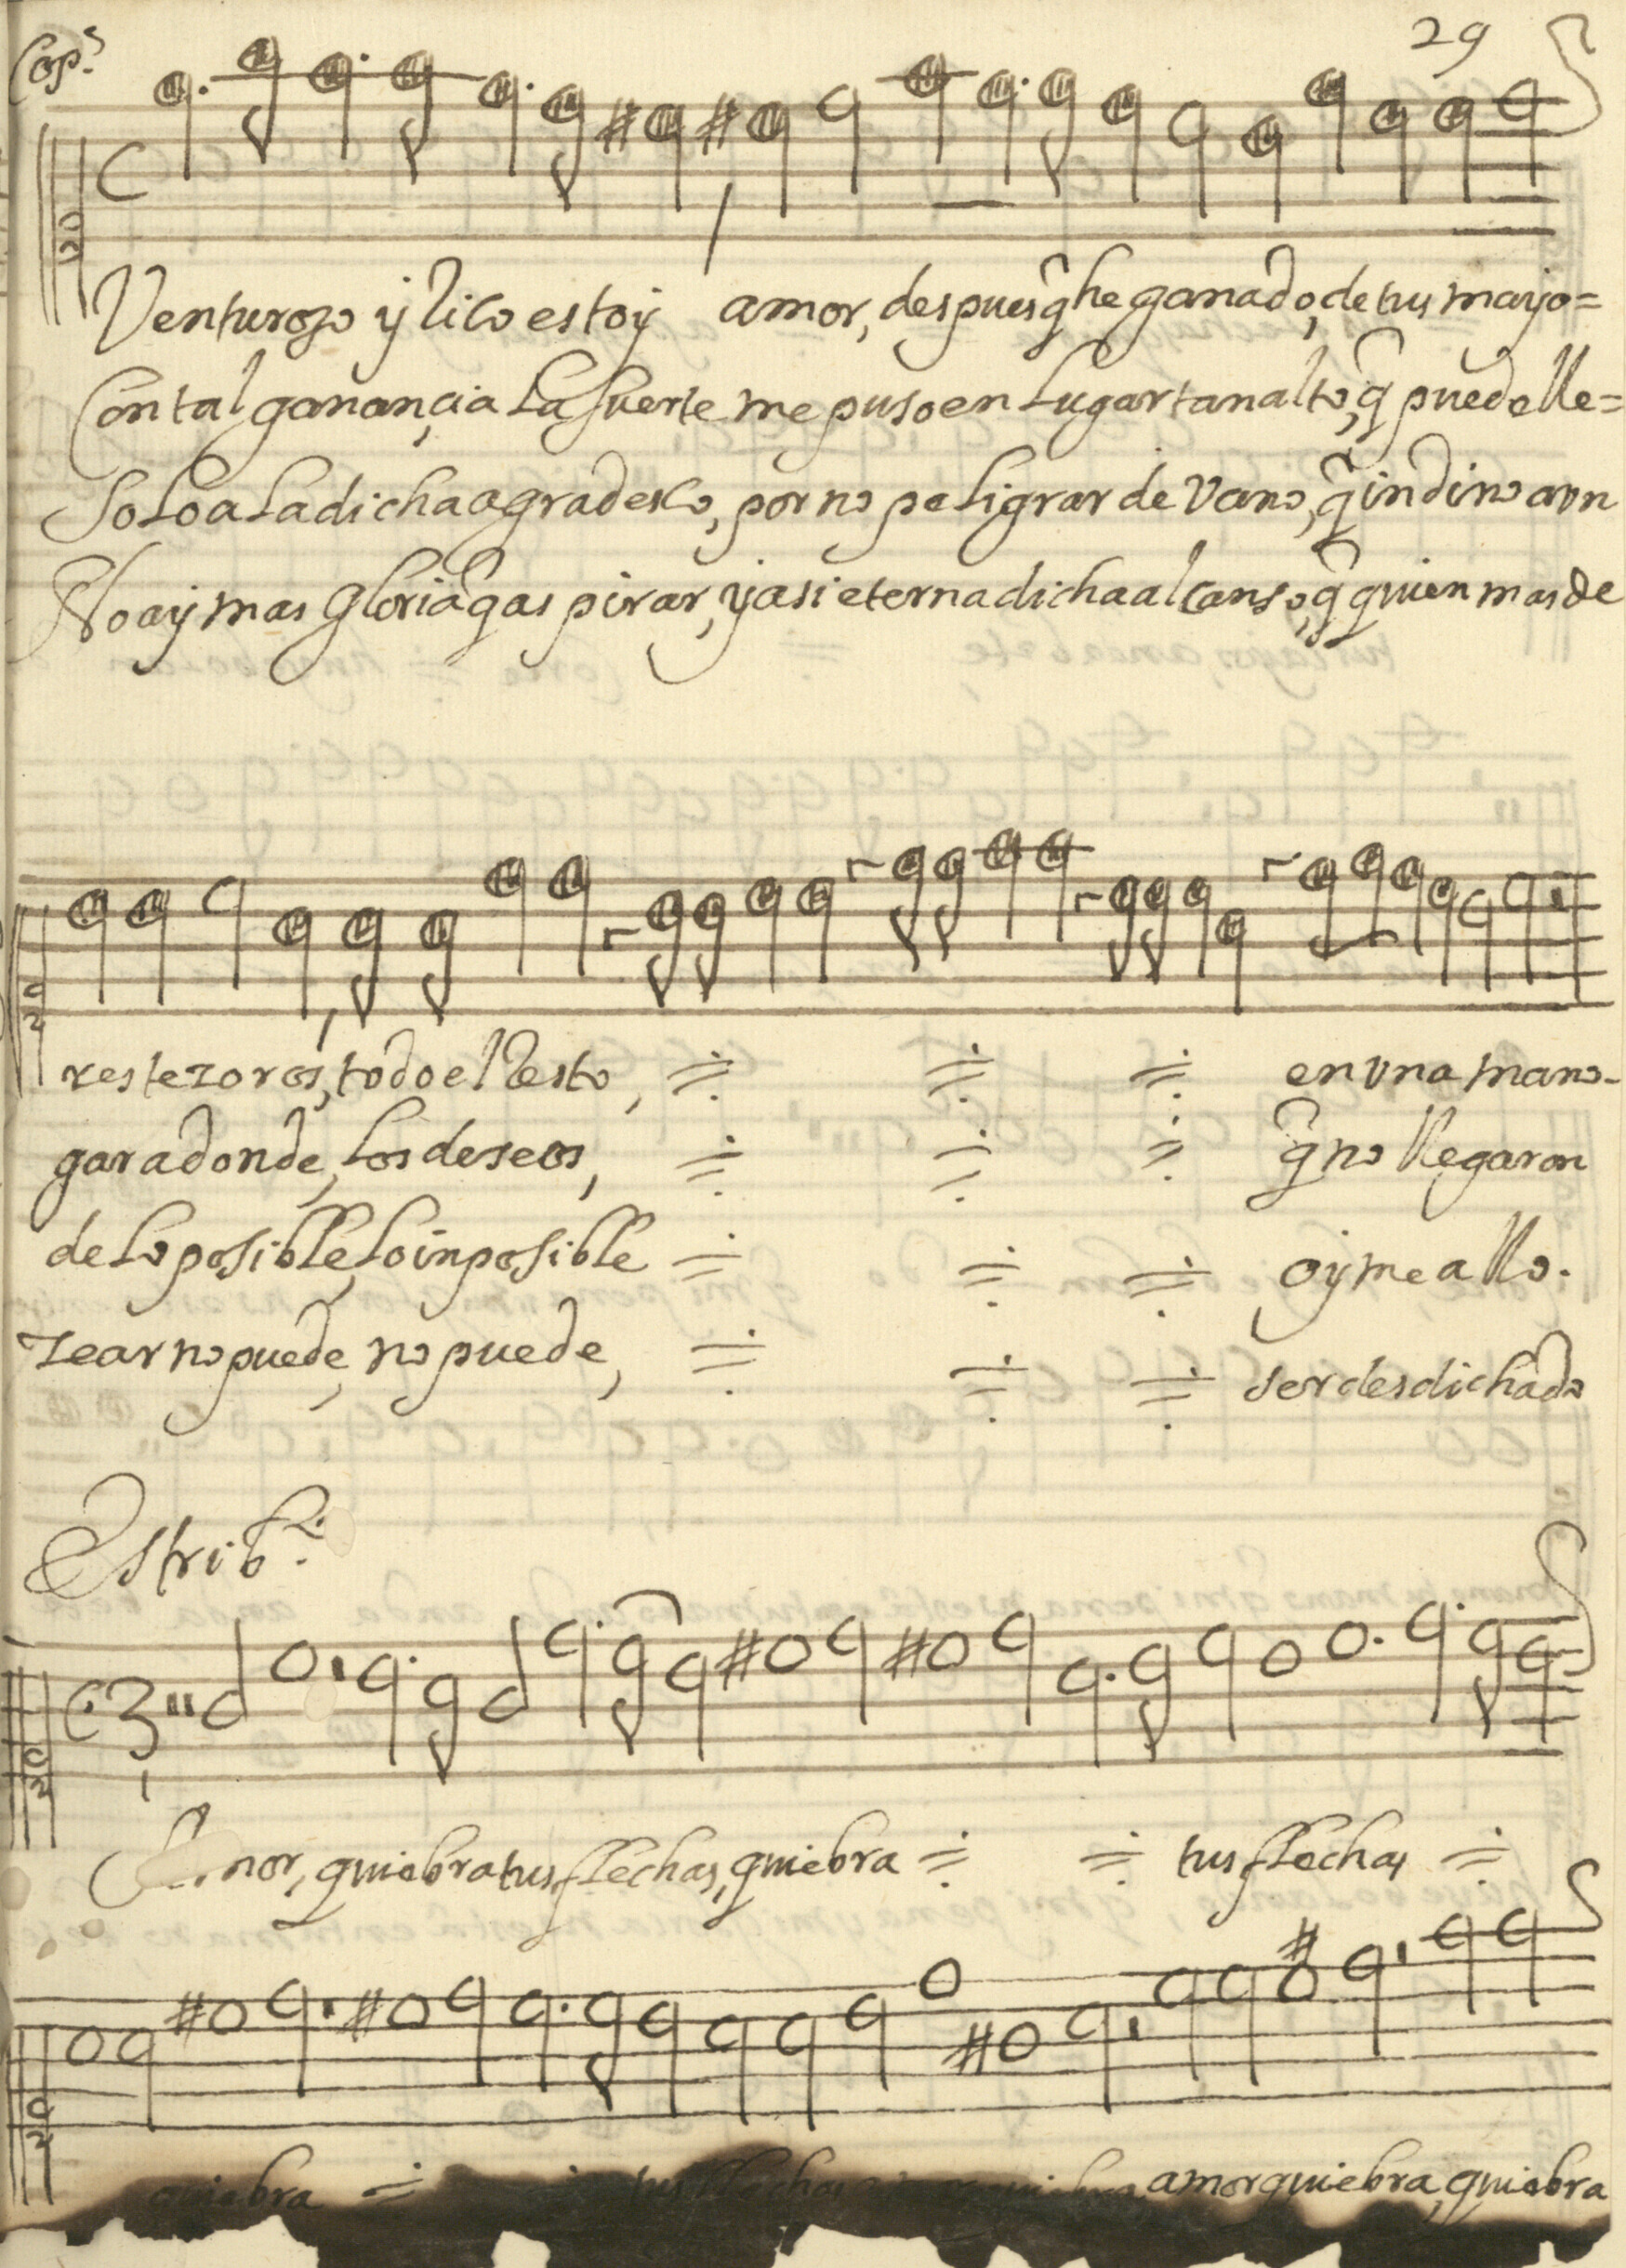 Cop.s
29
Venturozo y Rico estoy amor, despues q̃ he ganado, de tus mayo=
Con talganançia La Suerte me puso en Lugar tan alto, q̃ puedo lle=
Solo a La dicha agradesco, por no peligrar de Vano, q̃ indino aun
No ay mas Gloria q̃ as pirar, y asi eterna dicha alcanso, q̃ quien mas de
res tezoros, todo el Resto, en una mano.
gar adonde, Los deseos, q̃ no llegaron
de Lo posible, Lo inposible oy me allo.
zear no puede, no puede, ser desdichado
Estrib.o
Amor, quiebra tus flechas, quiebra tus flechas
quiebra tus flechas amor quiebra, quiebra